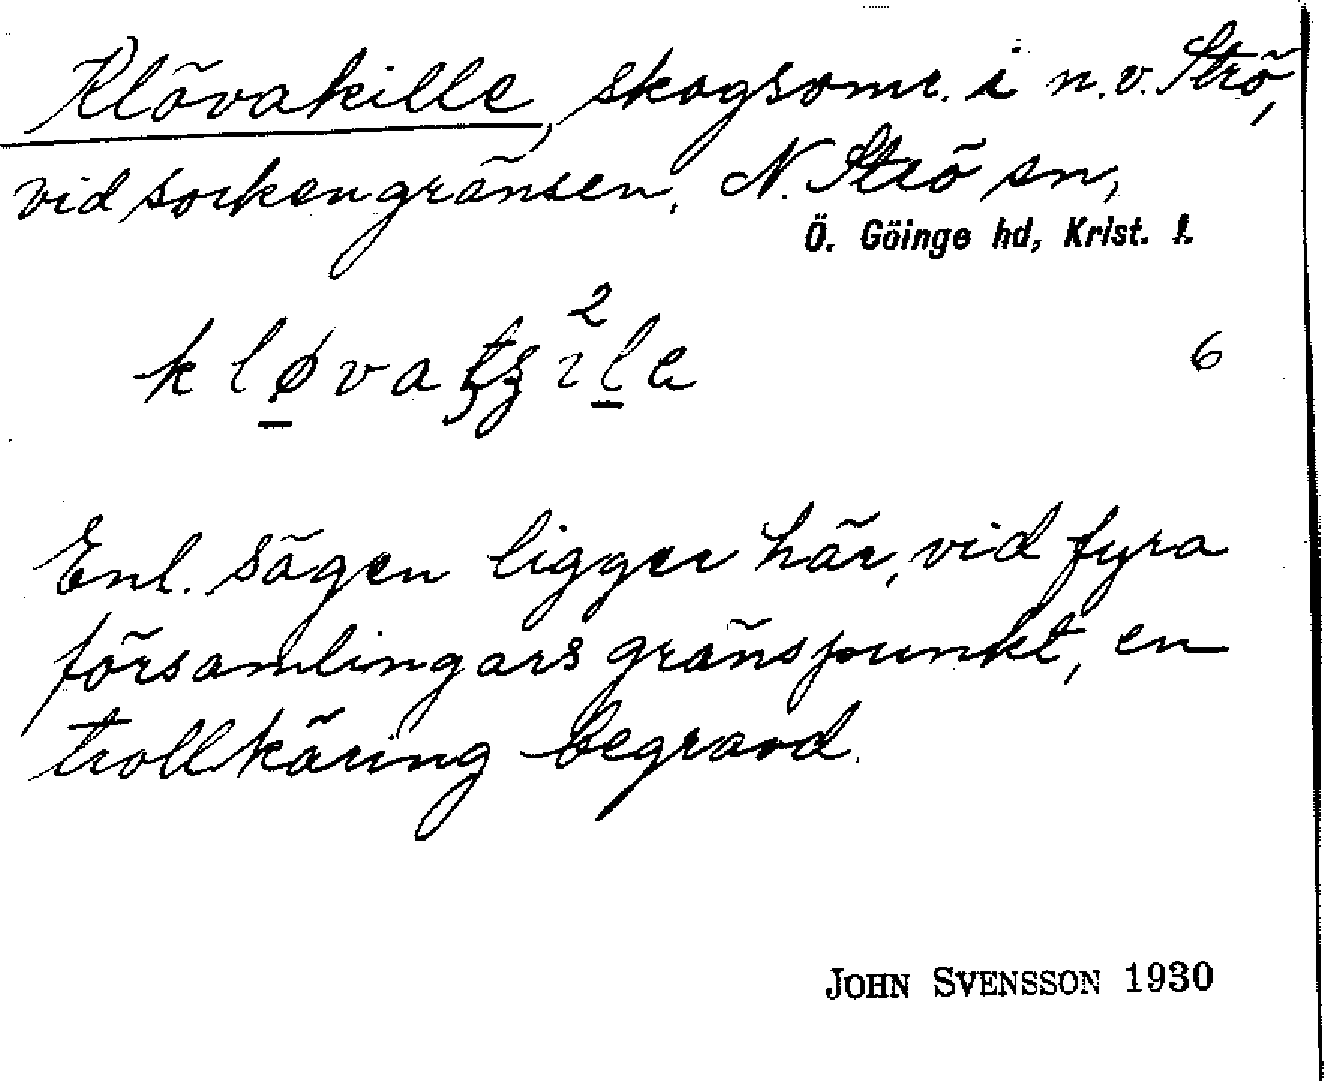 Klövakille, skogsomr. i n.v. Strö,
vid sockengränsen, N. Strö sn,
Ö. Göinge hd, Krist. l.
6
Enl. sägen ligger här, vid fyra
församlingars gränspunkt, en
trollkäring begravd.
JOHN SVENSSON 1930